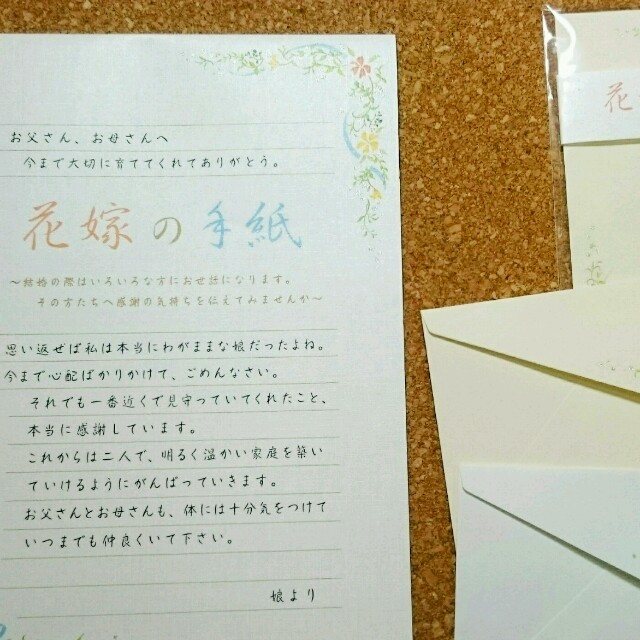 お父さん、お母さんへ
今まで大切に育ててくれてありがとう。
花嫁の手紙
～結婚の際はいろいろな方にお世話になります。
その方たちへ感謝の気持ちを伝えてみませんか～
思い返せば私は本当にわがままな娘だったよね。
今まで心配ばかりかけて、ごめんなさい。
それでも一番近くで見守っていてくれたこと、
本当に感謝しています。
これからは二人で、明るく温かい家庭を築い
ていけるようにがんばっていきます。
お父さんとお母さんも、体には十分気をつけて
いつまでも仲良くいて下さい。
娘より
花